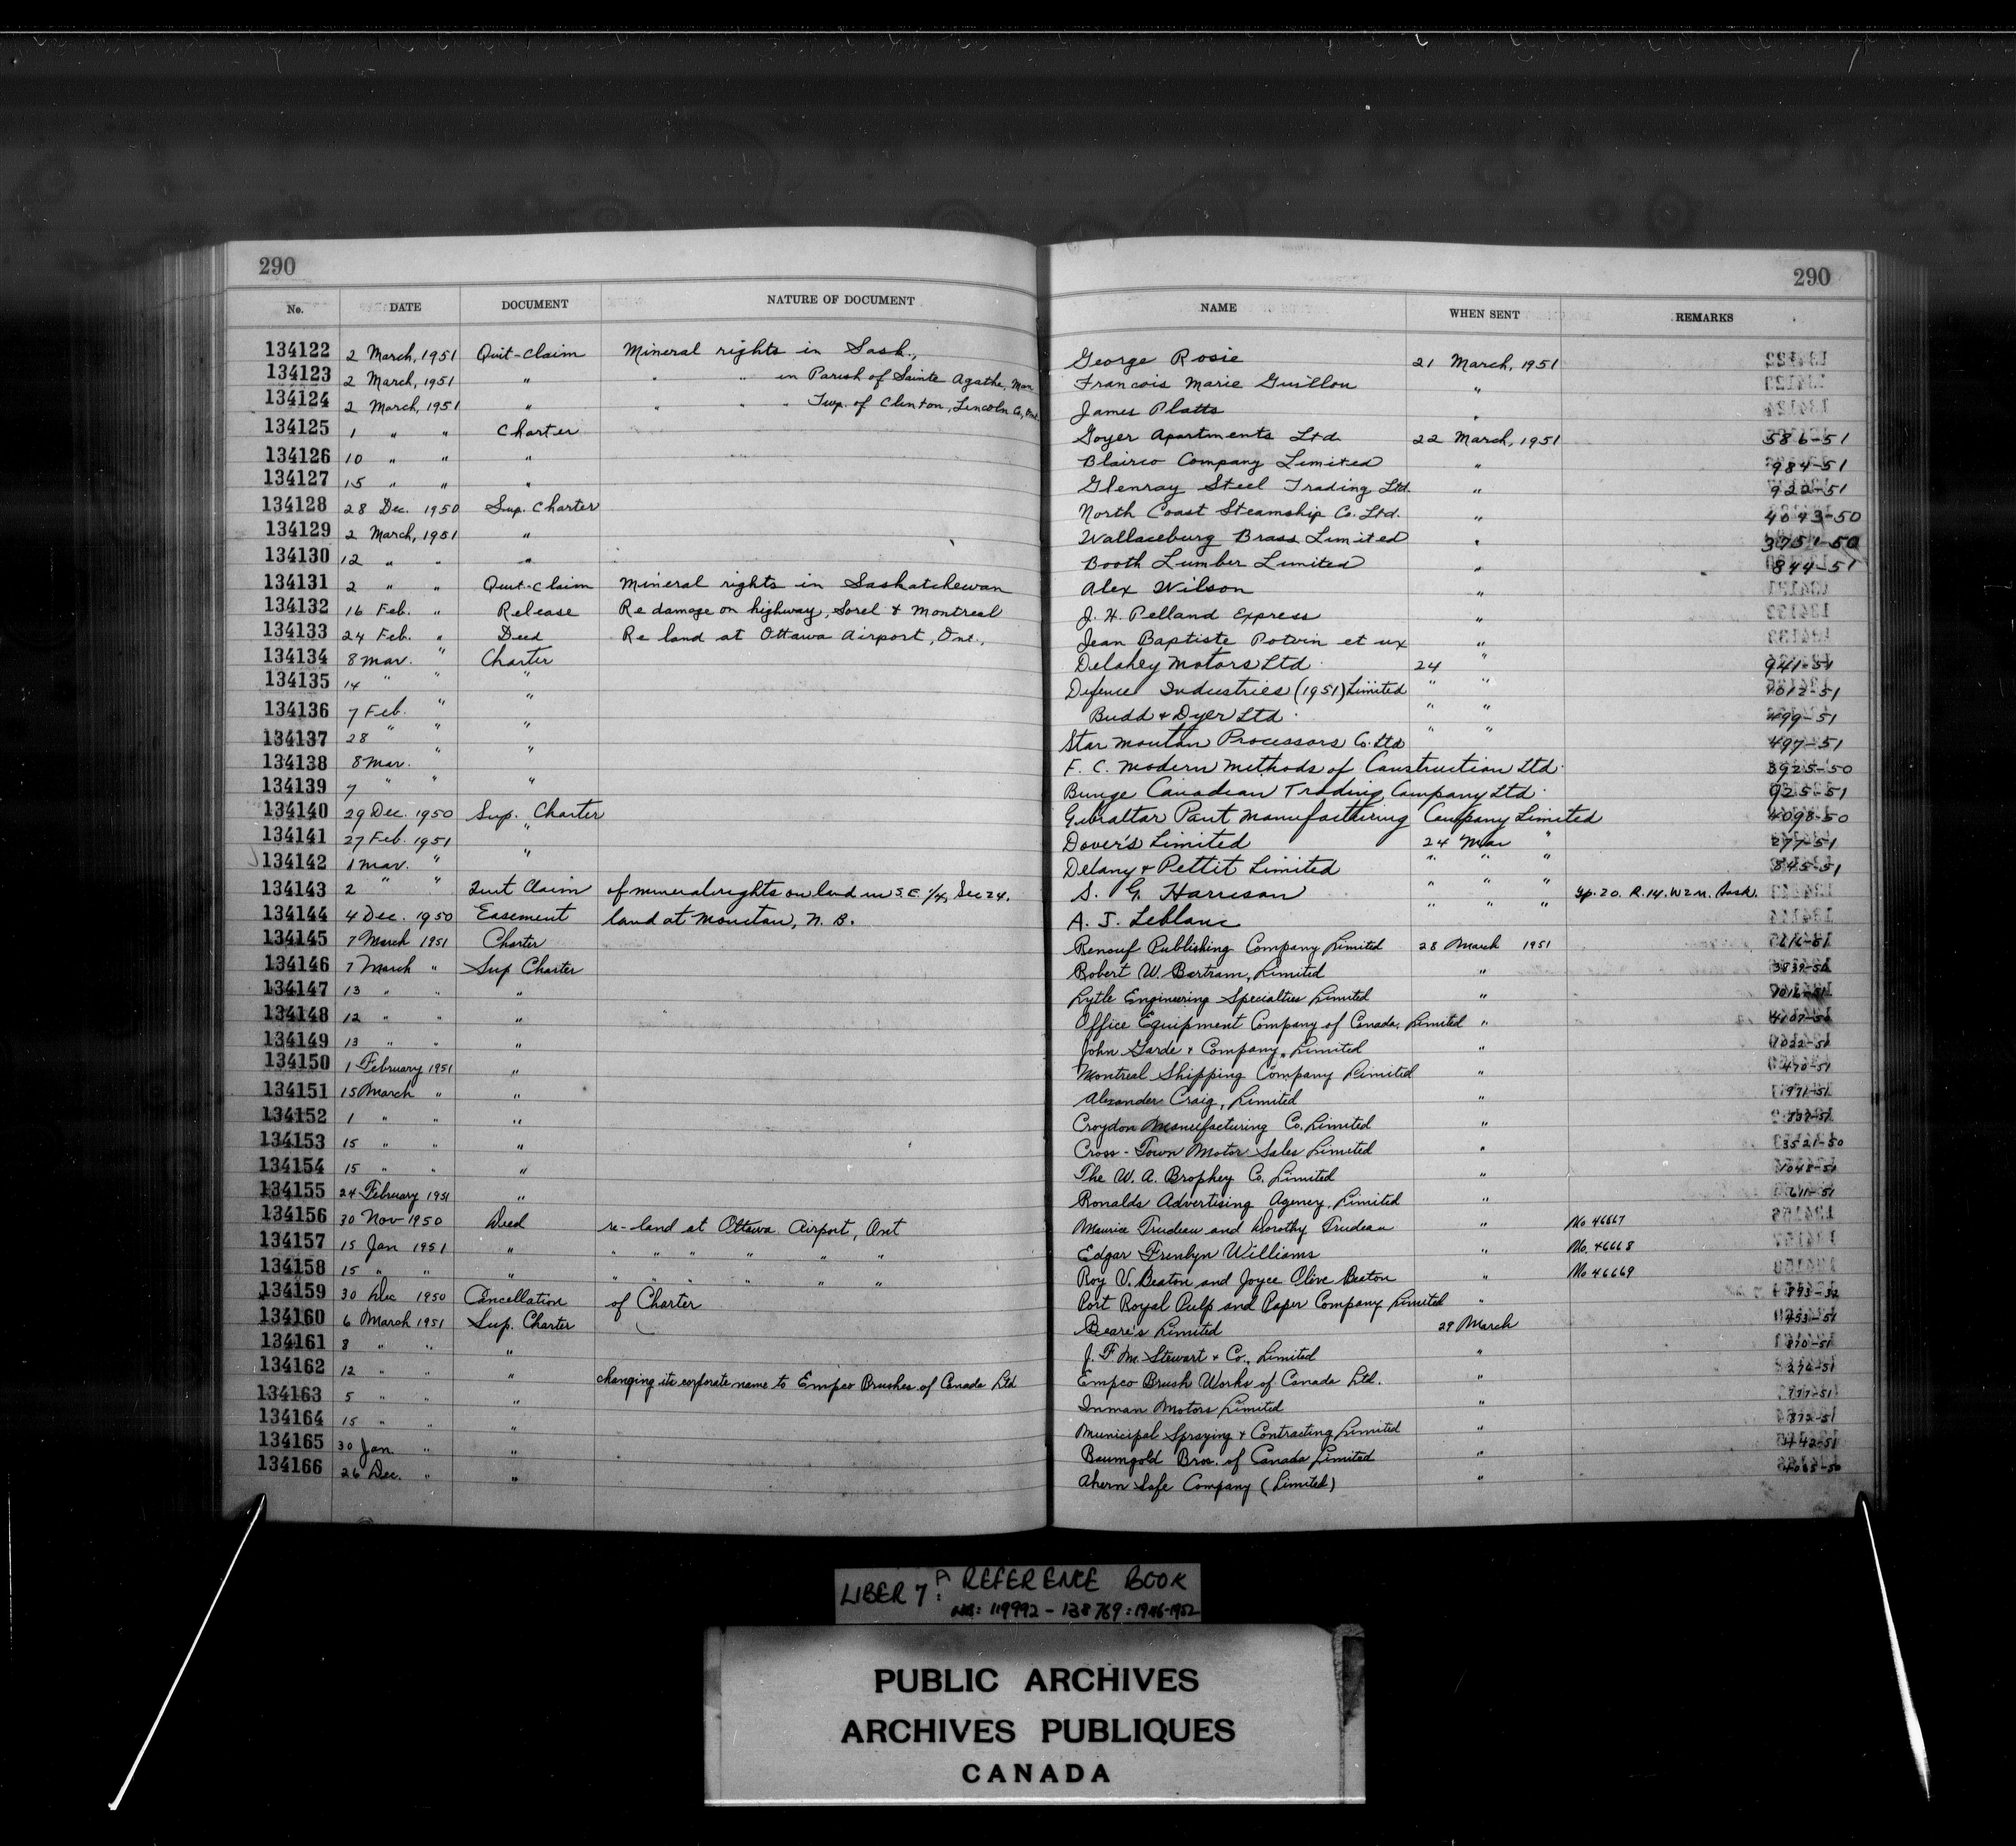 290 290
No. DATE DOCUMENT NATURE OF DOCUMENT NAME WHEN SENT REMARKS
134122 2 March, 1951 Quit-claim Mineral rights in Sask., George Rosie 21 March, 1951
134123 2 March, 1951 " " " in Parish of Sainte Agathe, Man Francois Marie Guillou "
134124 2 March, 1951 " " " " Twp. of Clinton, Lincoln Co, Ont. James Platts "
134125 1 " " Charter Goyer Apartments Ltd. 22 March, 1951 586-51
134126 10 " " " Blairco Company Limited " 984-51
134127 15 " " " Glenray Steel Trading Ltd. " 922-51
134128 28 Dec. 1950 Sup. Charter North Coast Steamship Co. Ltd. " 4043-50
134129 2 March, 1951 " Wallaceburg Brass Limited " 3751-50
134130 12 " " " Booth Lumber Limited " 844-51
134131 2 " " Quit-claim Mineral rights in Saskatchewan Alex Wilson "
134132 16 Feb. " Release Re damage on highway, Sorel & Montreal J. H. Pelland Express "
134133 24 Feb. " Deed Re land at Ottawa Airport, Ont., Jean Baptiste Potvin et ux "
134134 8 Mar. " Charter Delahey Motors Ltd. 24 " 941-51
134135 14 " " " Defence Industries (1951) Limited " " 1012-51
134136 7 Feb. " " Budd & Dyer Ltd. " " 499-51
134137 28 " " " Star Mouton Processors Co. Ltd " " 497-51
134138 8 Mar. " " F. C. Modern Methods of Construction Ltd. 3925-50
134139 7 " " " Bunge Canadian Trading Company Ltd. 925-51
134140 29 Dec. 1950 Sup. Charter Gibraltar Pant Manufacturing Company Limited 4098-50
134141 27 Feb. 1951 " Dover's Limited 24 Mar " 277-51
134142 1 Mar. " " Delany & Pettit Limited " " " 845-51
134143 2 " " Quit Claim of mineral rights on land in S.E. 1/4, Sec 24. S. G. Harrison " " " Tp. 20. R. 14. W 2 M. Sask.
134144 4 Dec. 1950 Easement land at Moncton, N. B. A. J. Leblanc " " "
134145 7 March 1951 Charter Renouf Publishing Company Limited 28 March 1951
134146 7 March " Sup Charter Robert W. Bartram, Limited "
134147 13 " " " Lytle Engineering Specialties Limited " 1016-51
134148 12 " " " Office Equipment Company of Canada, Limited " 4107-50
134149 13 " " " John Garde & Company, Limited " 1022-51
134150 1 February 1951 " Montreal Shipping Company Limited " 470-51
134151 15 March " " Alexander Craig, Limited " 971-51
134152 1 " " " Croydon Manufacturing Co. Limited "
134153 15 " " " Cross-Town Motor Sales Limited " 3521-50
134154 15 " " " The W. A. Brophey Co. Limited " 1048-51
134155 24 February 1951 " Ronalds Advertising Agency, Limited " 611-51
134156 30 Nov 1950 Deed re-land at Ottawa Airport, Ont Maurice Trudeau and Dorothy Trudeau " No 46667
134157 15 Jan 1951 " " " " " " " Edgar Frenlyn Williams " No. 46668
134158 15 " " " " " " " " " Roy V. Beaton and Joyce Olive Beaton " No 46669
134159 30 Dec 1950 Cancellation of Charter Port Royal Pulp and Paper Company Limited "
134160 6 March 1951 Sup. Charter Beare's Limited 29 March 953-51
134161 8 " " " J. F. M. Stewart & Co., Limited " 870-51
134162 12 " " " changing its corporate name to Empco Brushes of Canada Ltd Empco Brush Works of Canada Ltd. " 276-51
134163 5 " " " Inman Motors Limited " 777-51
134164 15 " " " Municipal Spraying & Contracting Limited " 872-51
134165 30 Jan " " Baumgold Bros. of Canada Limited "
134166 26 Dec. " " Ahern Safe Company (Limited) " 4065-50
LIBER 7: A REFERENCE BOOK
NOS: 119992 - 138769: 1946-1952
PUBLIC ARCHIVES
ARCHIVES PUBLIQUES
CANADA